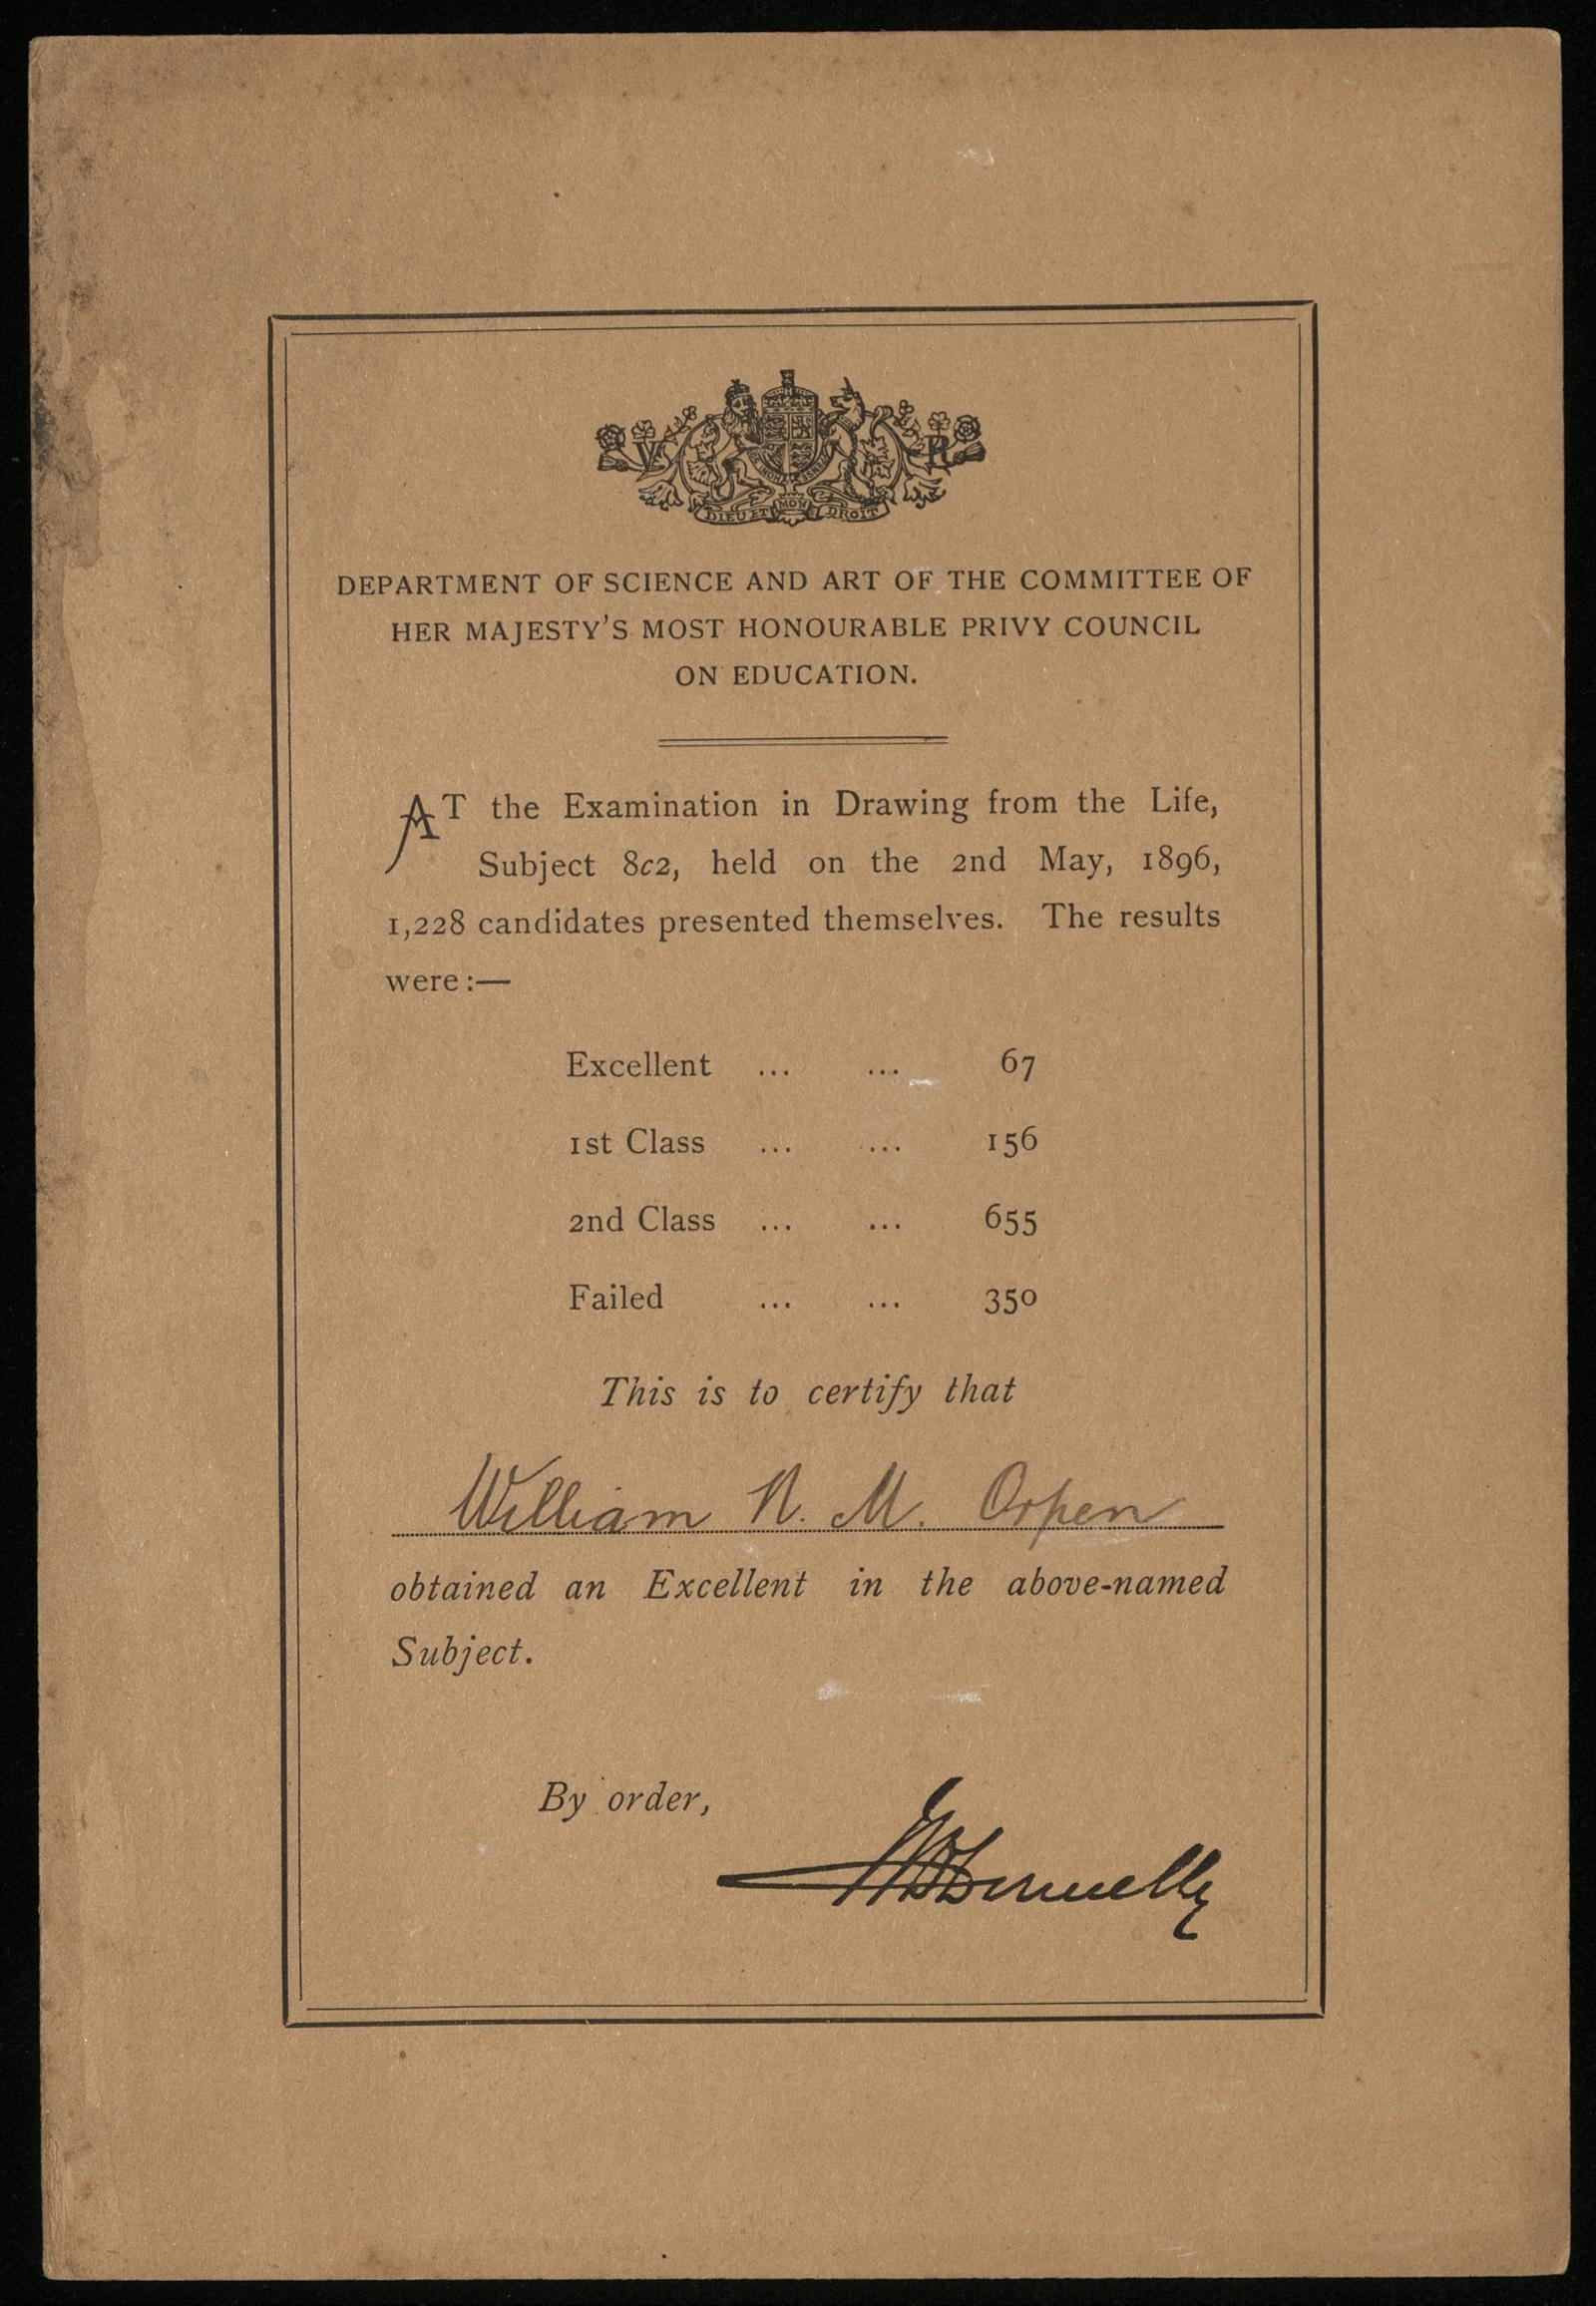 V R
DIEU ET MON DROIT
DEPARTMENT OF SCIENCE AND ART OF THE COMMITTEE OF
HER MAJESTY'S MOST HONOURABLE PRIVY COUNCIL
ON EDUCATION.
AT the Examination in Drawing from the Life,
Subject 8c2, held on the 2nd May, 1896,
1,228 candidates presented themselves. The results
were:—
Excellent ... ... 67
1st Class ... ... 156
2nd Class ... ... 655
Failed ... ... 350
This is to certify that
William N. M. Orpen
obtained an Excellent in the above-named
Subject.
By order,
Donnelly